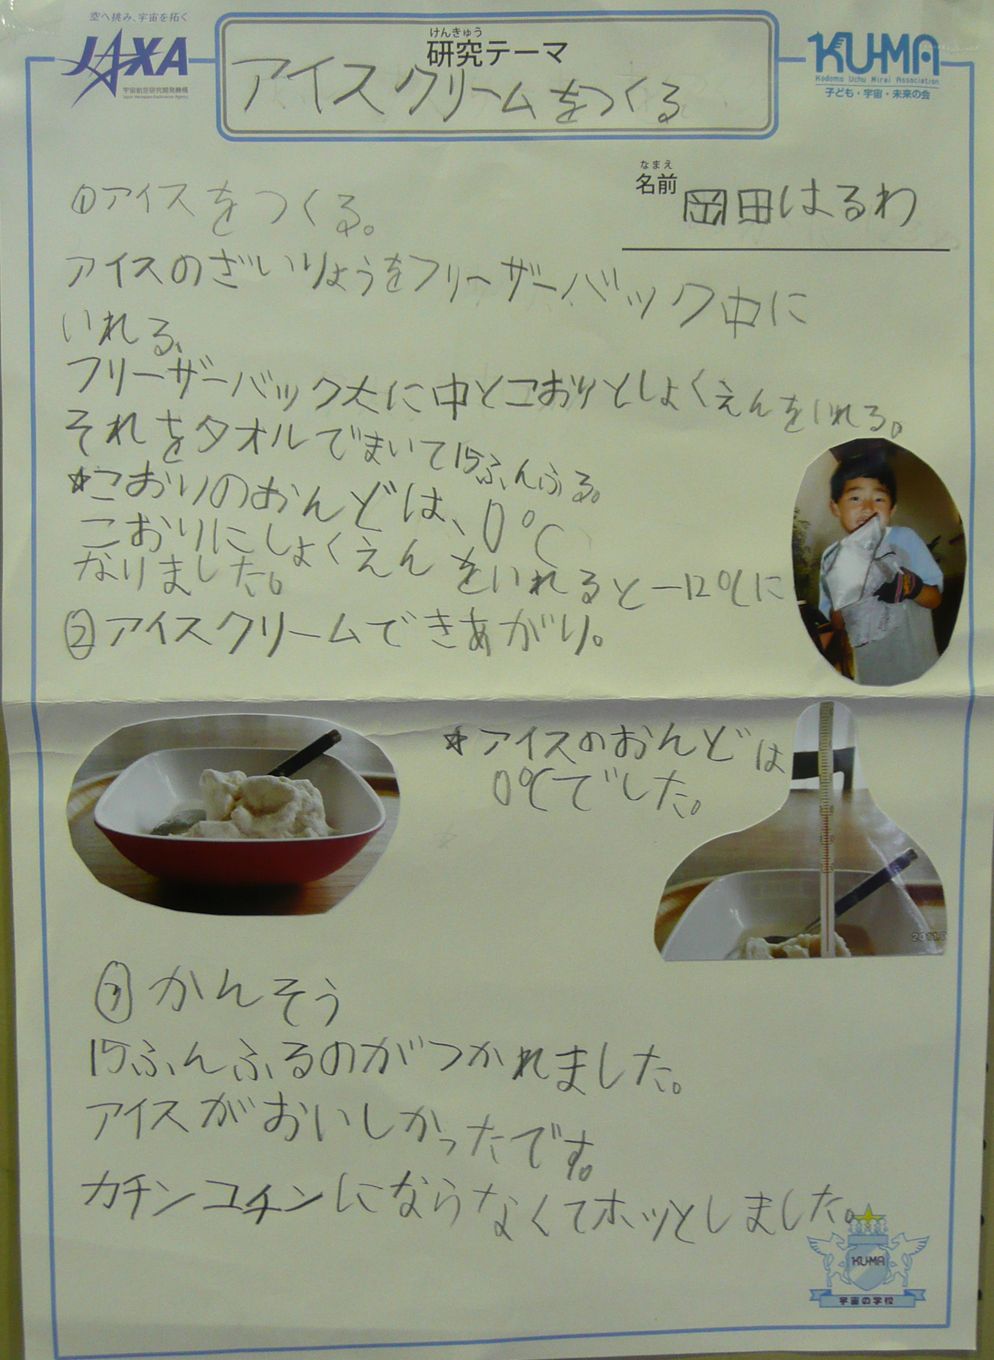 空へ挑み、宇宙を拓く
JAXA
宇宙航空研究開発機構
Japan Aerospace Exploration Agency
けんきゅう
研究テーマ
アイスクリームをつくる
KU-MA
Kodomo Uchu Mirai Association
子ども・宇宙・未来の会
なまえ
名前 岡田はるわ
①アイスをつくる。
アイスのざいりょうをフリーザーバック中に
いれる、
フリーザーバック大に中とこおりとしょくえんをいれる。
それをタオルでまいて15ふんふる。
☆こおりのおんどは、0℃
こおりにしょくえんをいれると-12℃に
なりました。
②アイスクリームできあがり。
☆アイスのおんどは
0℃でした。
2011.
③かんそう
15ふんふるのがつかれました。
アイスがおいしかったです。
カチンコチンにならなくてホッとしました。
KU-MA
宇宙の学校